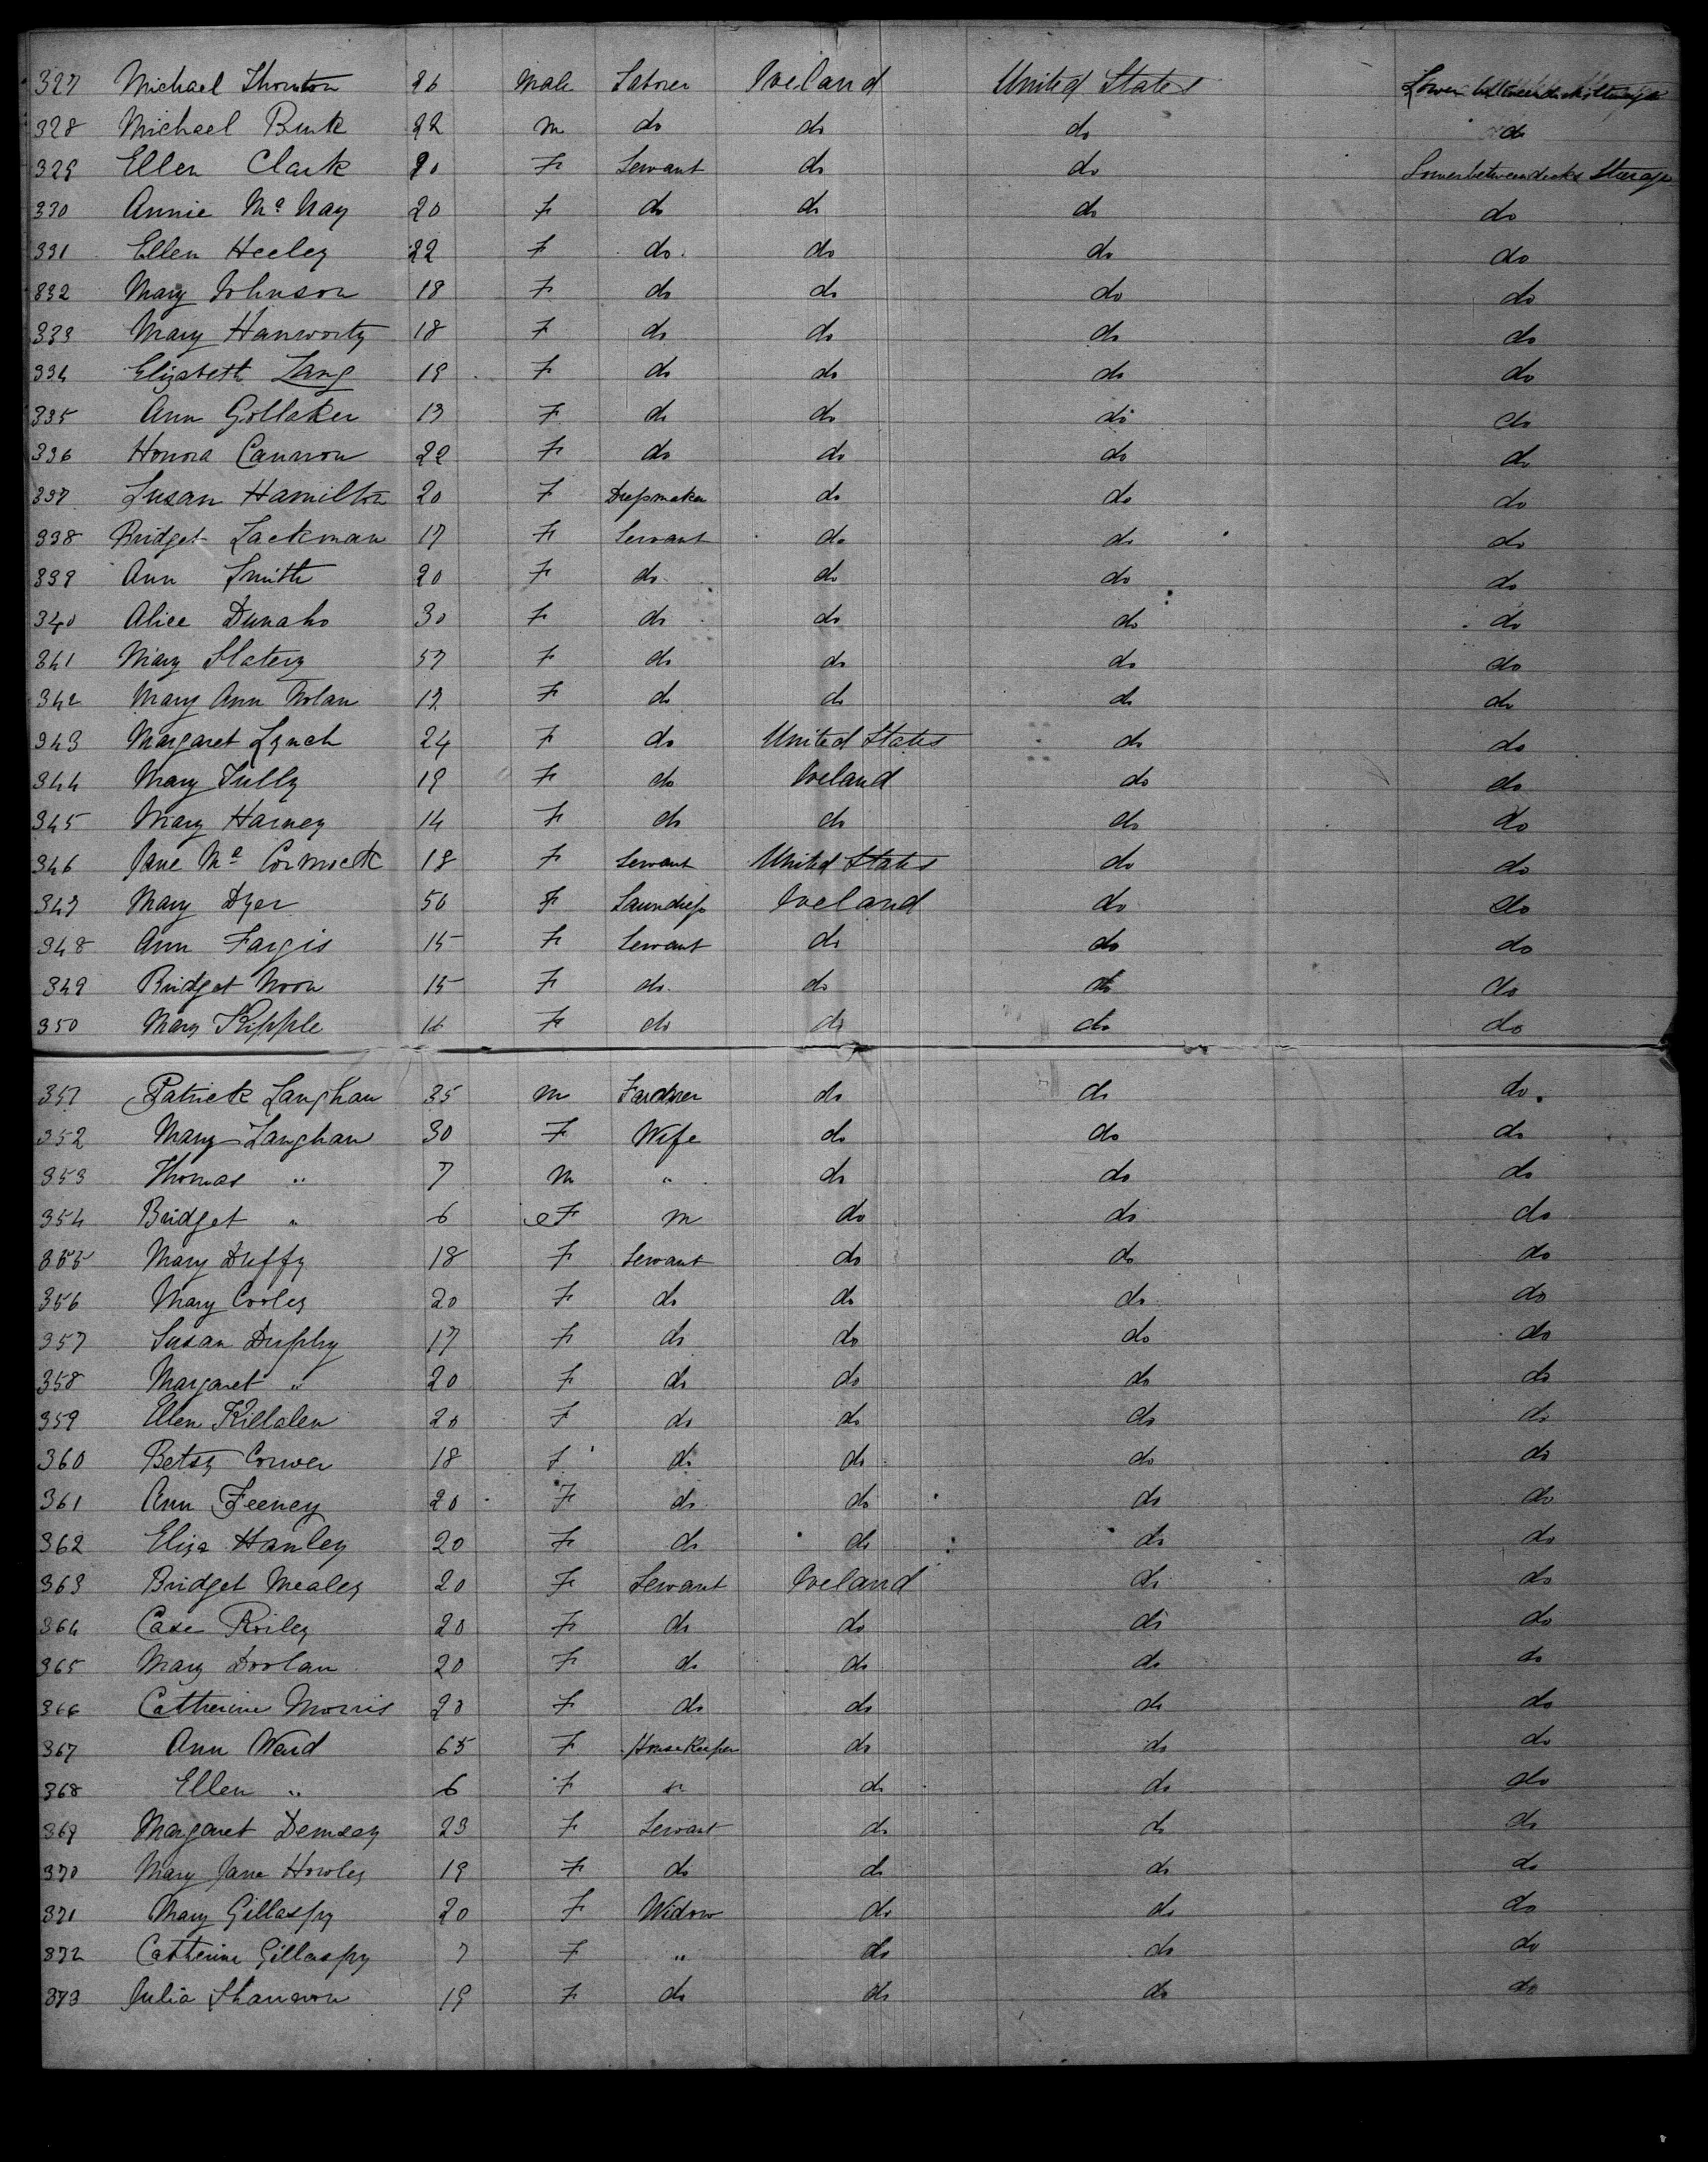 327 Michael Thornton 26 Male Laborer Ireland United States Lower betweendecks Steerage
328 Michael Burk 22 m do do do do
329 Ellen Clark 20 F Servant do do Lower betweendecks Steerage
330 Annie Mc Nay 20 F do do do do
331 Ellen Heeley 22 F do do do do
332 Mary Johnson 18 F do do do do
333 Mary Hanworty 18 F do do do do
334 Elizabeth Lang 19 F do do do do
335 Ann Gollaker 13 F do do do do
336 Honora Cannon 22 F do do do do
337 Susan Hamilton 20 F Dressmaker do do do
338 Bridget Lackman 17 F Servant do do do
339 Ann Smith 20 F do do do do
340 Alice Dunaho 30 F do do do do
341 Mary Slatery 57 F do do do do
342 Mary Ann Nolan 17 F do do do do
343 Margaret Lynch 24 F do United States do do
344 Mary Tully 19 F do Ireland do do
345 Mary Harney 14 F do do do do
346 Jane Mc Cormack 18 F Servant United States do do
347 Mary Dyer 56 F Laundress Ireland do do
348 Ann Fargis 15 F Servant do do do
349 Bridget Noon 15 F do do do do
350 Mary Kipple 16 F do do do do
351 Patrick Langhan 35 m Farmer do do do
352 Mary Langhan 30 F Wife do do do
353 Thomas " 7 m " do do do
354 Bridget " 6 F m do do do
355 Mary Duffy 18 F Servant do do do
356 Mary Cooley 20 F do do do do
357 Susan Duphy 17 F do do do do
358 Margaret " 20 F do do do do
359 Ellen Killalen 20 F do do do do
360 Betsy Conver 18 F do do do do
361 Ann Feeney 20 F do do do do
362 Eliza Hanley 20 F do do do do
363 Bridget Mealey 20 F Servant Ireland do do
364 Case Roiley 20 F do do do do
365 Mary Doolan 20 F do do do do
366 Catherine Morris 20 F do do do do
367 Ann Ward 65 F HouseKeeper do do do
368 Ellen " 6 F " do do do
369 Margaret Demsey 23 F Servant do do do
370 Mary Jane Howley 19 F do do do do
371 Mary Gillaspy 20 F Widow do do do
372 Catherine Gillaspy 7 F " do do do
373 Julia Shannon 19 F do do do do